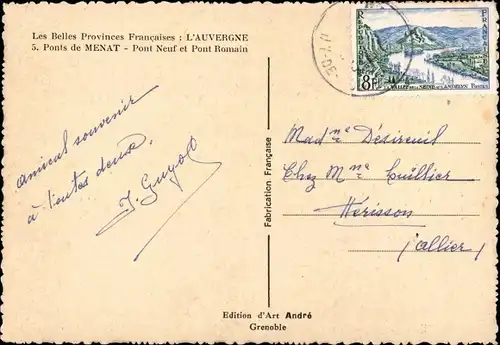 Les Belles Provinces Françaises : L'AUVERGNE
5. Ponts de MENAT - Pont Neuf et Pont Romain
amical souvenir
à toutes deux.
J. Guyot
Fabrication Française
Edition d'Art André
Grenoble
REPUBLIQUE FRANÇAISE
8F
LA VALLÉE DE LA SEINE AUX ANDELYS
POSTES
Madme Désireuil
Chez Mme Cuillier
Hérisson
(allier)